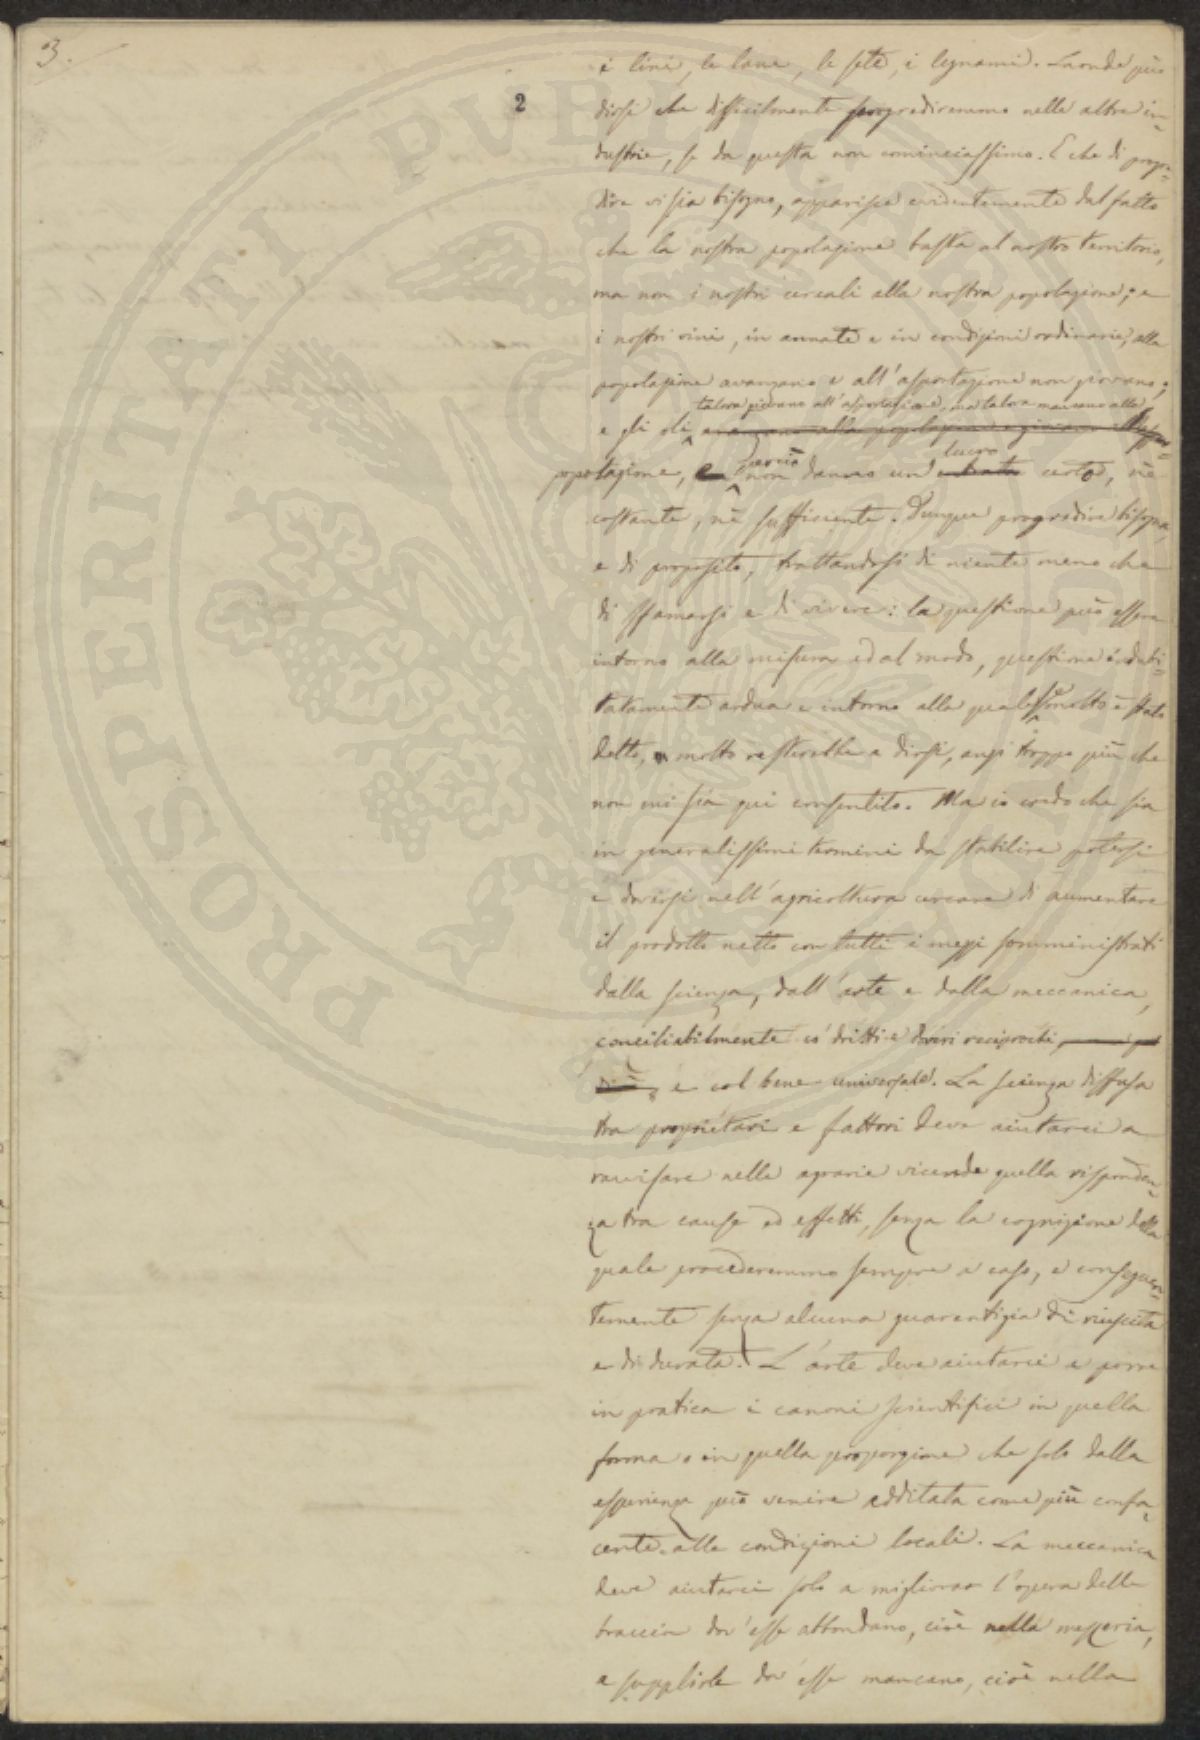 3.
2
i lini, le lane, le sete, i legnami. Laonde può
dirsi che difficilmente progrediremmo nelle altre in=
dustrie, se da questa non cominciassimo. E che di progre=
dire vi sia bisogno, apparisce evidentemente dal fatto
che la nostra popolazione basta al nostro territorio,
ma non i nostri cereali alla nostra popolazione; e
i nostri vini, in annate e in condizioni ordinarie, alla
popolazione avanzano e all'asportazione non giovano;
talora giovano all'asportazione, ma talora mancano alla
e gli oli avanzano alla popolazione e giovano
popolazione, e perciò non danno un lucro certo, nè
costante, nè sufficiente. Dunque progredire bisogna,
e di proposito, trattandosi di niente meno che
di sfamarsi e di vivere: la questione può essere
intorno alla misura ed al modo, questione indubi=
tatamente ardua e intorno alla quale se molto è stato
detto, molto resterebbe a dirsi, anzi troppo più che
non mi sia qui consentito. Ma io credo che sia
in generalissimi termini da stabilire potersi
e doversi nell'agricoltura cercare di aumentare
il prodotto netto con tutti i mezzi somministrati
dalla scienza, dall'arte e dalla meccanica,
conciliabilmente co' dritti e doveri reciprochi
e col bene universale. La scienza diffusa
tra proprietari e fattori deve aiutarci a
ravvisare nelle agrarie vicende quella risponden=
za tra cause ed effetti, senza la cognizione della
quale procederemmo sempre a caso, e conseguen=
temente senza alcuna guarentigia di riuscita
e di durata. L'arte deve aiutarci a porre
in pratica i canoni scientifici in quella
forma o in quella proporzione che solo dalla
esperienza può venire additata come più confa=
cente alle condizioni locali. La meccanica
deve aiutarci solo a migliorar l'opera delle
braccia dov'esse abbondano, cioè nella mezzeria,
e supplirle dov'esse mancano, cioè nella
PROSPERITATI PUBLICAE